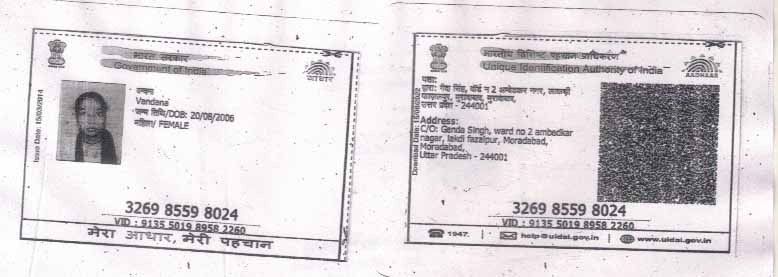 भारत सरकार
Government of India
आधार
वन्दना
Vandana
जन्म तिथि/DOB: 20/08/2006
महिला/ FEMALE
Issue Date: 15/03/2014
3269 8559 8024
VID : 9135 5019 8958 2260
मेरा आधार, मेरी पहचान
भारतीय विशिष्ट पहचान प्राधिकरण
Unique Identification Authority of India
AADHAAR
पता:
वार्ड न 2 अम्बेडकर नगर,
मुरादाबाद,
उत्तर प्रदेश - 244001
Address:
C/O: Genda Singh, ward no 2 ambedkar
nagar, lakdi fazalpur, Moradabad,
Moradabad,
Uttar Pradesh - 244001
Download Date:
3269 8559 8024
VID : 9135 5019 8958 2260
1947
help@uidai.gov.in
www.uidai.gov.in